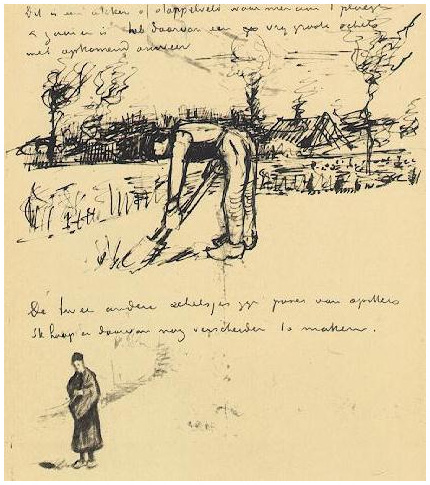 Dit is een akker of stoppelveld waar men aan 't
& zaaien is heb daarvan een vrij groote schets
met opkomend onweer
De twee andere schetsjes zijn poses van spitters
Ik hoop er daarvan nog verscheiden te maken.